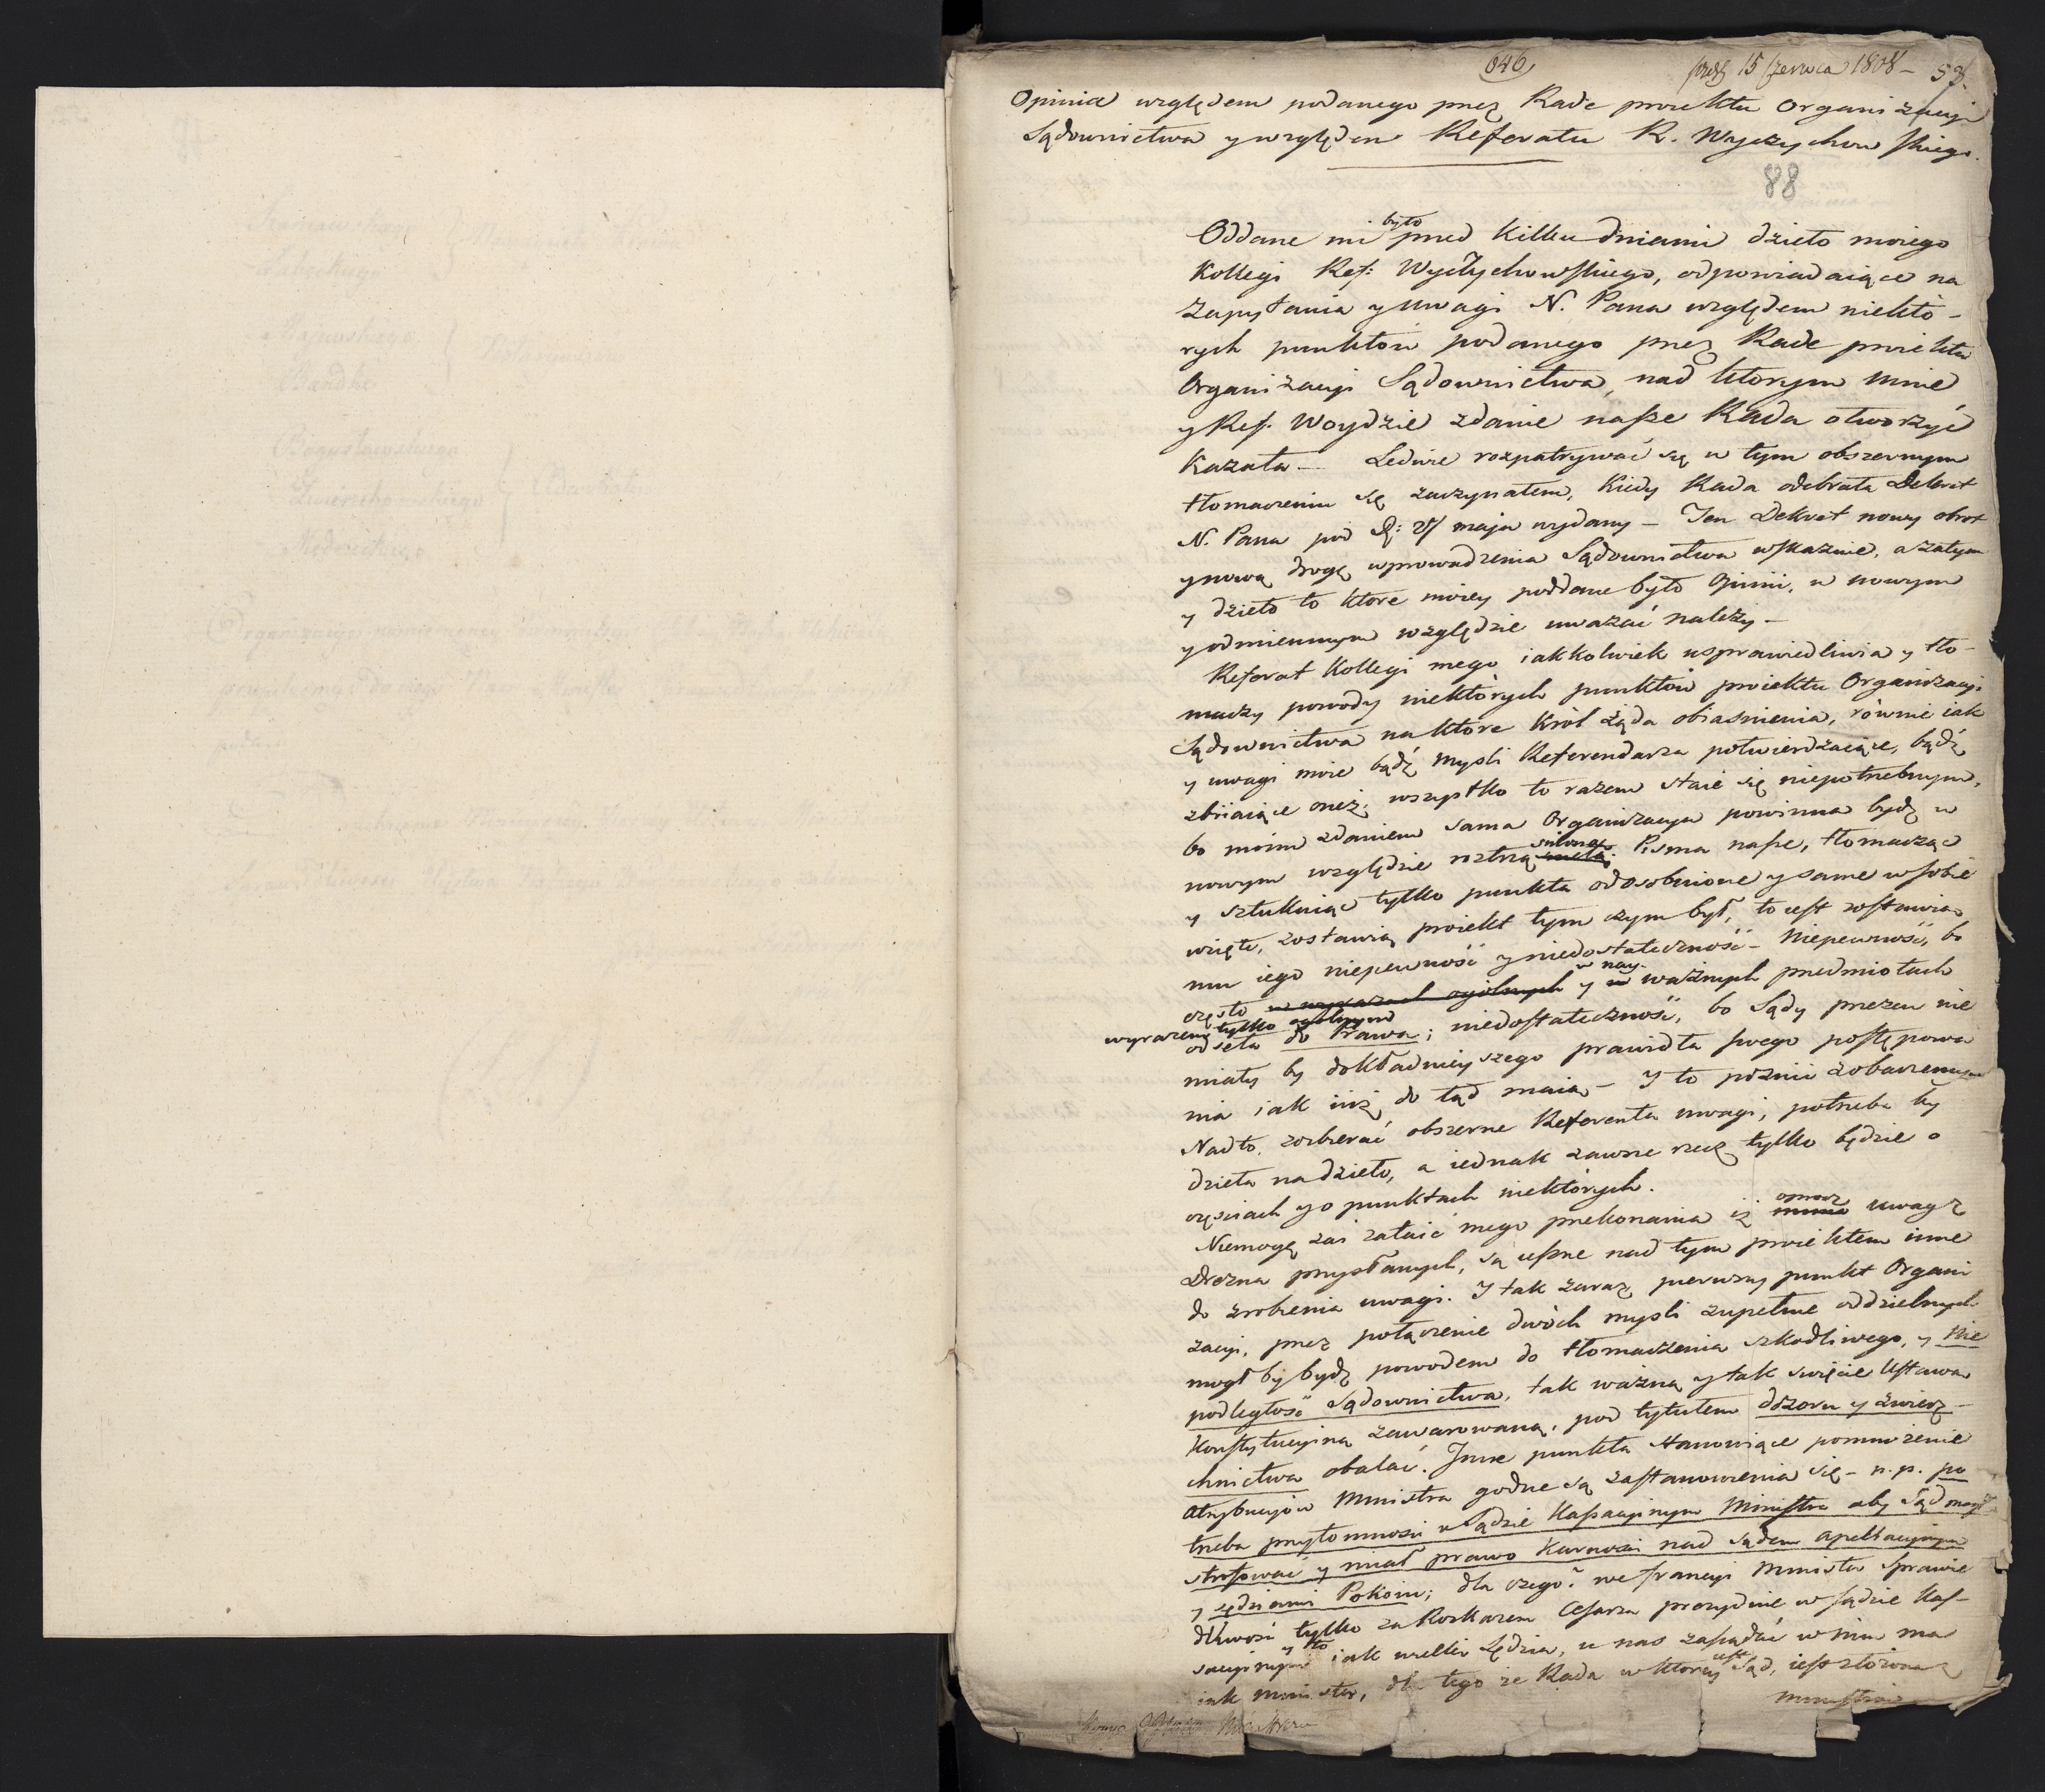 646
15 Czerwca 1808 – 58.
Opinia względem podanego przez Radę proiektu Organizacyi
Sądownictwa y względem Referatu R. Wyczychowskiego.
88
Oddane mi było przed kilku dniami dzieło moiego
Kollegi Ref: Wyczychowskiego, odpowiadaiące na
Zapytania y uwagi N. Pana względem niektó-
rych punktów podanego przez Radę proiektu
Organizacyi Sądownictwa, nad ktorym mnie
y Ref. Woydzie zdanie nasze Rada otworzyć
Kazała – Ledwie rozpatrywać się w tym obszernym
tłomaczeniu się zaczynałem, kiedy Rada odebrała Dekret
N. Pana pod d: maja wydany – Ten Dekret nowy obrot
y nową drogę wprowadzenia Sądownictwa wskazuie, a zatym
y dzieło to ktore moiey poddane było Opinii, w nowym
y odmiennym względzie uważać należy –
Referat Kollegi mego iakkolwiek usprawiedliwia y tło-
maczy powody niektórych punktów proiektu Organizacyi
Sądownictwa na ktore Król żąda obiasnienia, równie iak
y uwagi moie bądź mysli Referendarza potwierdzaiące, bądź
zbiiaiące oneż; wszystko to razem staie się niepotrzebnym,
bo moim zdaniem sama Organizacya powinna bydź w
nowym względzie roztrząśniona. Pisma nasze, tłomacząc
y sztukuiąc tylko punkta odosobnione y same w sobie
wzięte, zostawią proiekt tym czym był, to iest zostawią
mu iego niepewność y niedostateczność – Niepewność, bo
często w wyrazach ogólnych y w nay ważnych przedmiotach
wyrazem tylko ogolnym
odseła do Prawa; niedostateczność, bo Sądy przezeń nie
miały by dokładnieyszego prawidła swego postępowa
nia iak iuż do tąd maią – Y to pozniei zobaczemy
Nadto, zozbierać obszerne Referenta uwagi, potrzeba by
dzieła na dzieło, a iednak zawsze rzecz tylko będzie o
częsciach y o punktach niektórych.
Niemogę zaś zataić mego przekonania iż oprocz uwag z
Drezna przysłanych, są ieszcze nad tym proiektem inne
do zrobienia uwagi. Y tak zaraz pierwszy punkt Organi
zacyi, przez połączenie dwóch mysli zupełnie oddzielnych
mogł by bydź powodem do tłomaczenia szkodliwego, y nie
podległość Sądownictwa, tak ważną y tak swięcie Ustawą
Konstytucyiną zawarowaną, pod tytułem dozoru y zwierz-
chnictwa obalać. Inne punkta stanowiące pomnożenie
Atrybucyiów Ministra godne są zastanowienia się – n.p. po
trzeba przytomności w Sądzie Kassacyinym Ministra aby Sąd mogł
strofować y miał prawo Karności nad Sądem Apellacyinym
y sędziami Pokoiu; dla czego? we Francyi Minister Sprawie
dliwości tylko za Rozkazem Cesarza prezyduie w sądzie Kas-
sacyinym y to iak wielki Sędzia, u nas zasiadać w nim ma
iak minister, dla tego że Rada w ktorey iest Sąd, iest złożona